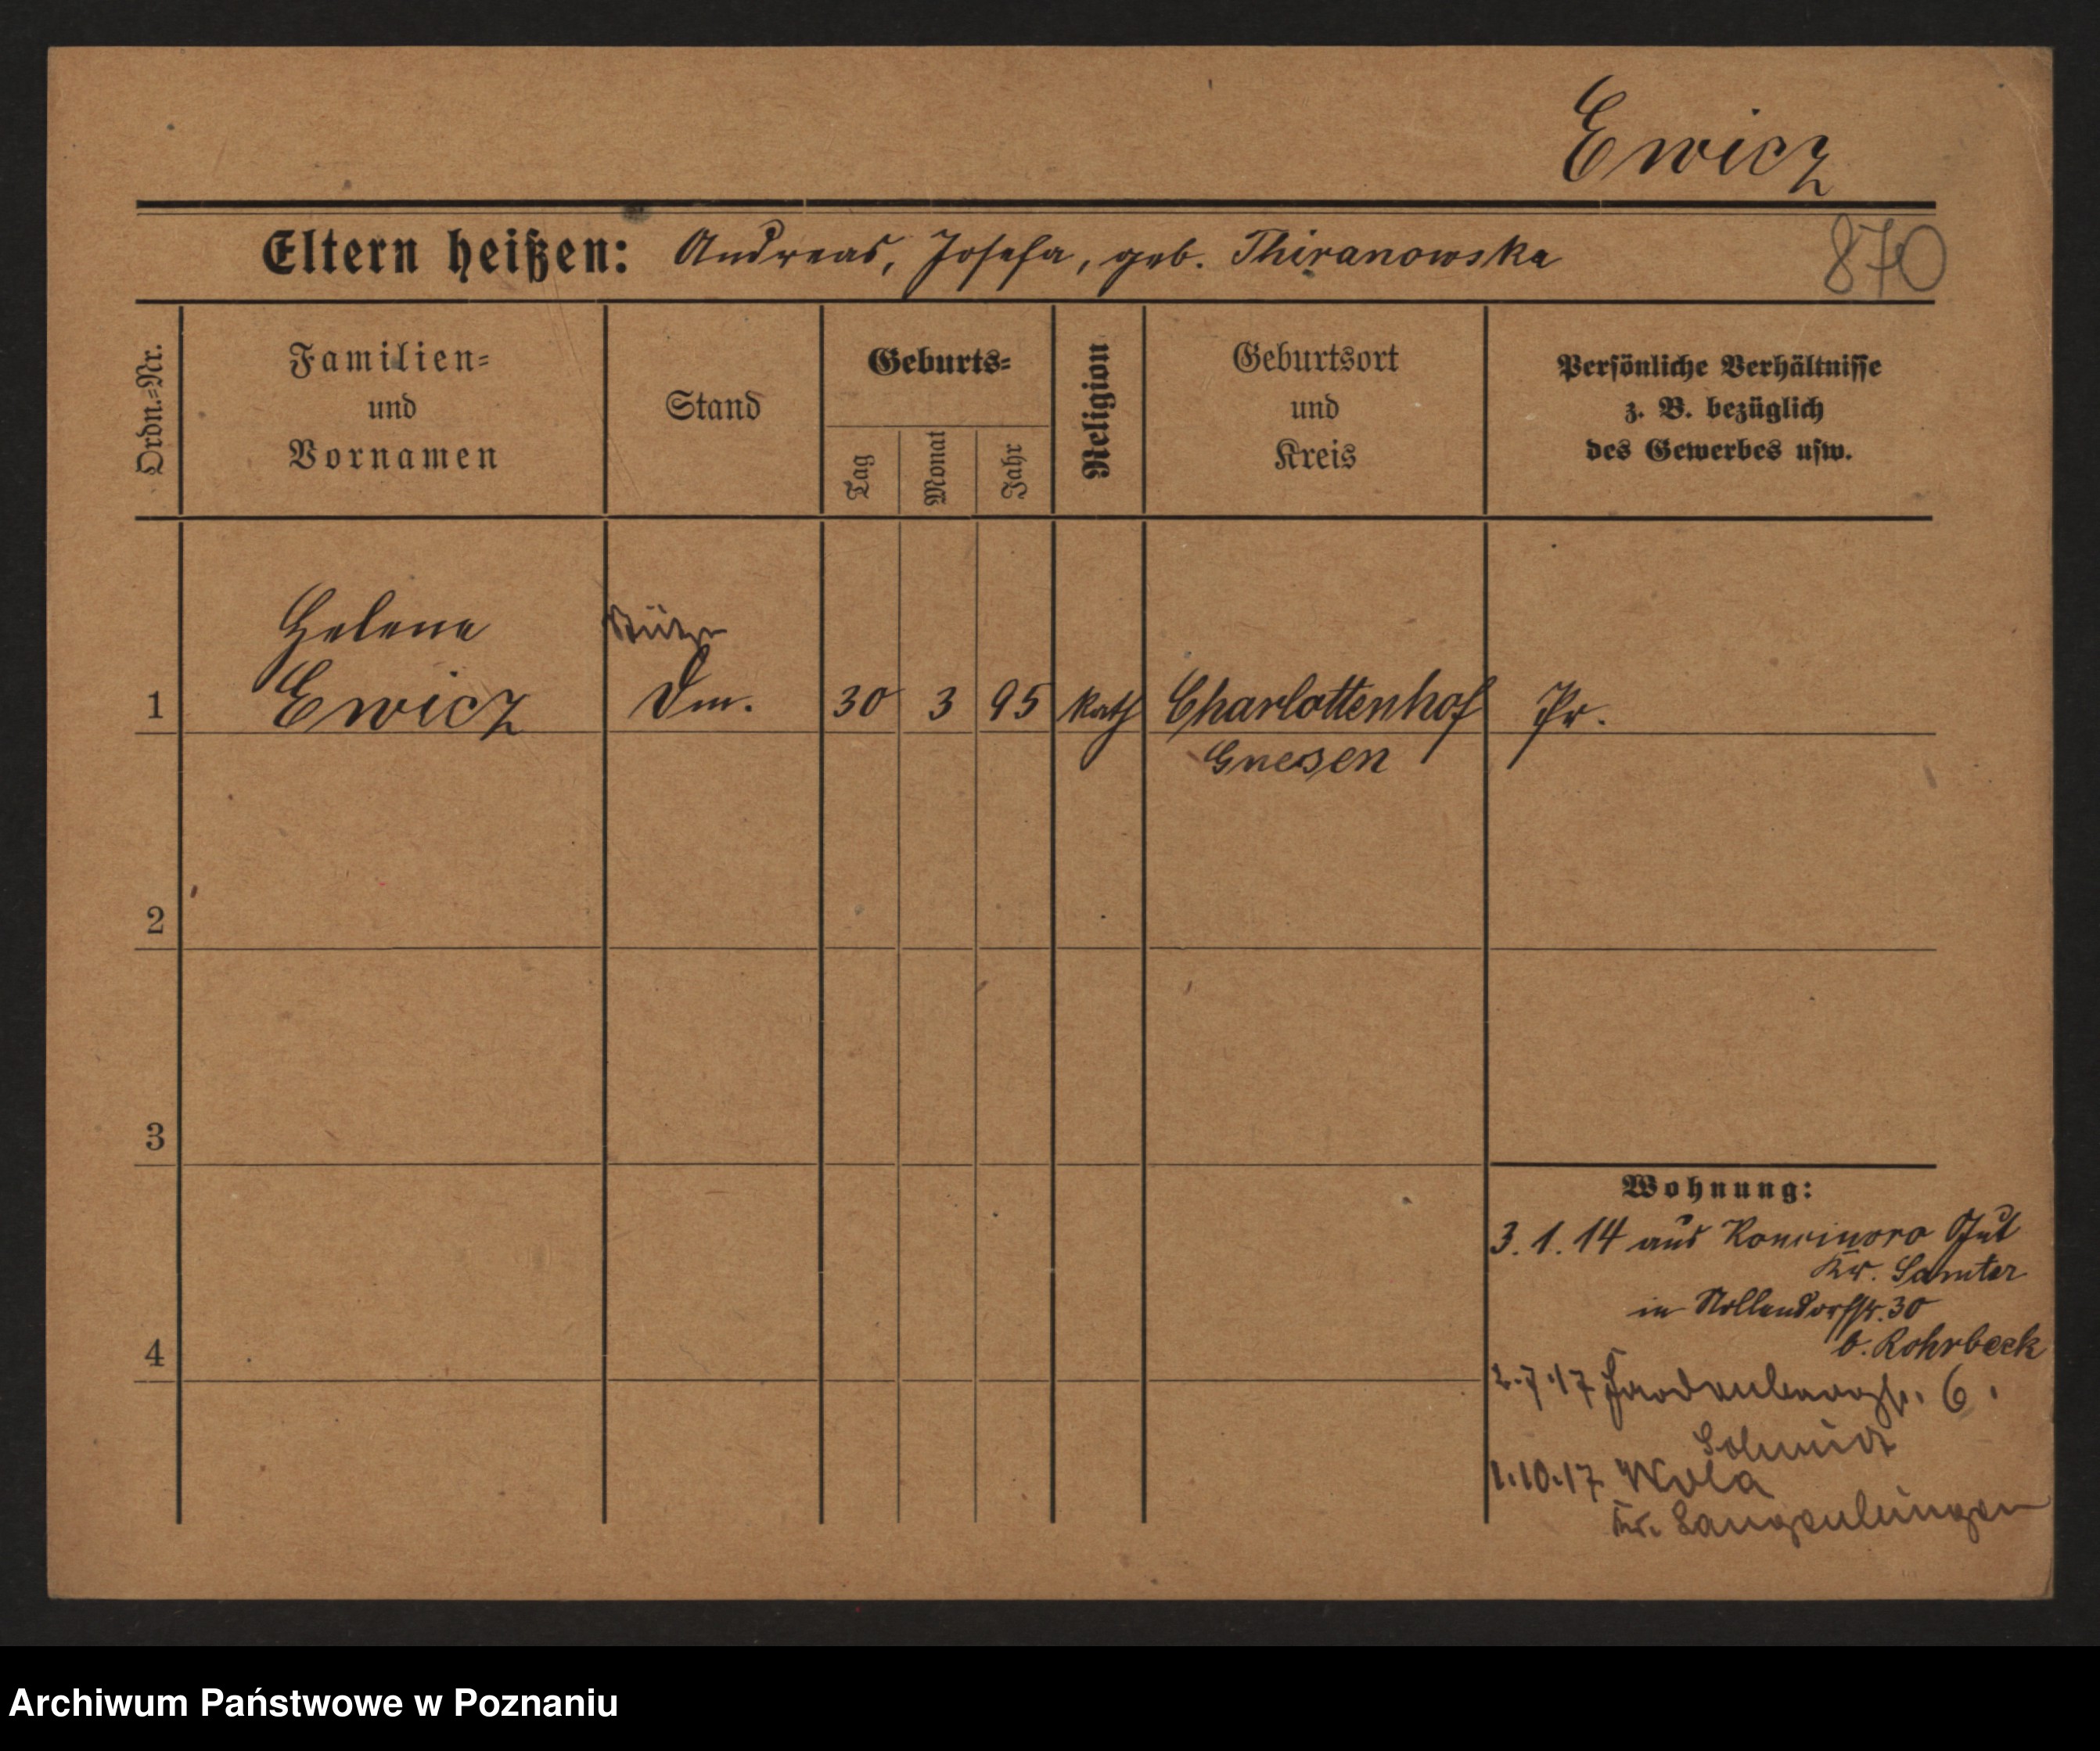 Ewicz
Eltern heißen: Andreas, Josefa, geb. Thiranowska
870
Ordn.=Nr.
Familien=
und
Vornamen
Stand
Geburts=
Tag
Monat
Jahr
Religion
Geburtsort
und
Kreis
Persönliche Verhältnisse
z. B. bezüglich
des Gewerbes usw.
Helene
Stütze
1 Ewicz Dm. 30 3 95 kath Charlottenhof Pr.
Gnesen
2
3
4
Wohnung:
3. 1. 14 aus Gut
Kr. Samter
in Nollendorfstr. 30
b. Rohrbeck
2.7.17 6.
Schmidt
1.10.17 Wola
Kr.
Archiwum Państwowe w Poznaniu